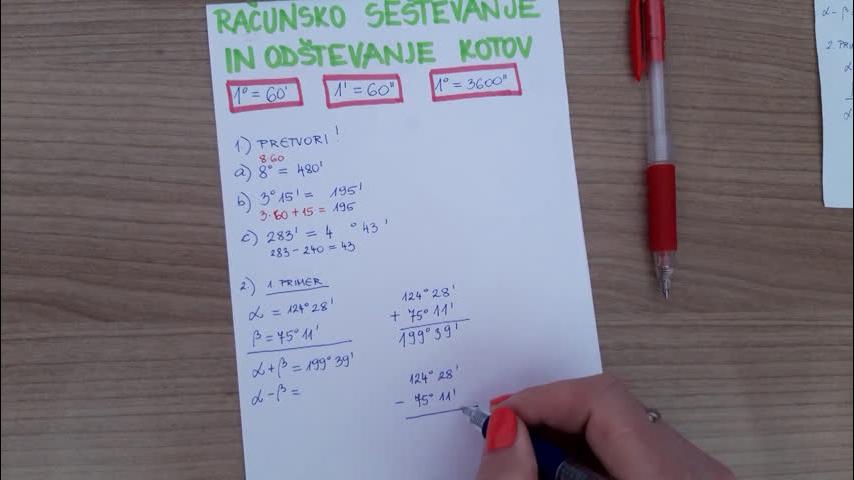 RAČUNSKO SEŠTEVANJE
IN ODŠTEVANJE KOTOV
1° = 60' 1' = 60" 1° = 3600"
1.) PRETVORI!
8·60
a) 8° = 480'
b) 3°15' = 195'
3·60 + 15 = 195
c) 283' = 4 ° 43'
283 - 240 = 43
2.) 1. PRIMER
α = 124°28'
β = 75°11'
α + β = 199°39'
α - β =
124°28'
+ 75°11'
199°39'
124°28'
- 75°11'
α - β
2.
α